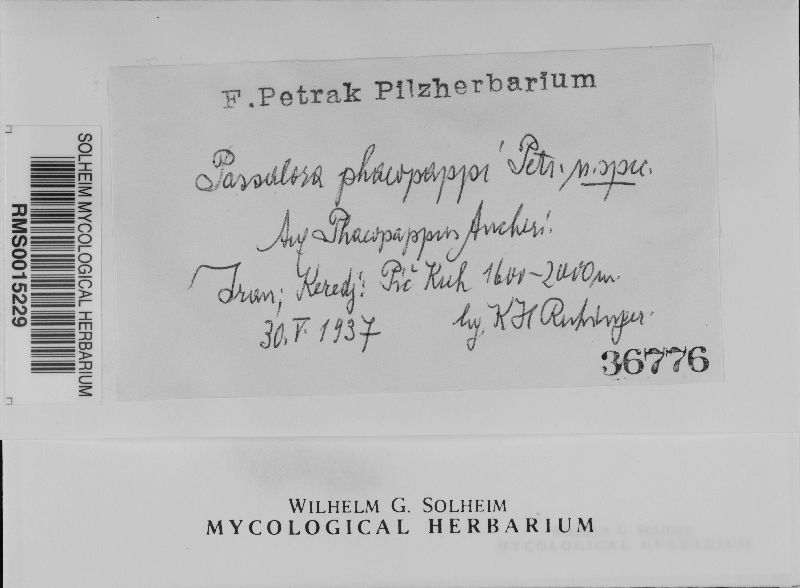 F. Petrak Pilzherbarium
Passalora phaeopappi Petr. n. spec.
Auf Phaeopappus Aucheri.
Iran; Keredj: Pič Kuh 1600-2000 m.
30. V. 1937 lg. K H Rechinger.
36776
SOLHEIM MYCOLOGICAL HERBARIUM
RMS0015229
WILHELM G. SOLHEIM
MYCOLOGICAL HERBARIUM